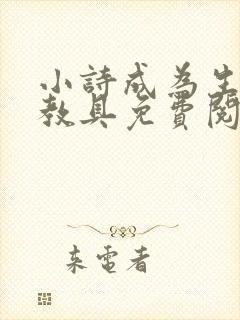 小詩成為生
教具免費閱
来電者